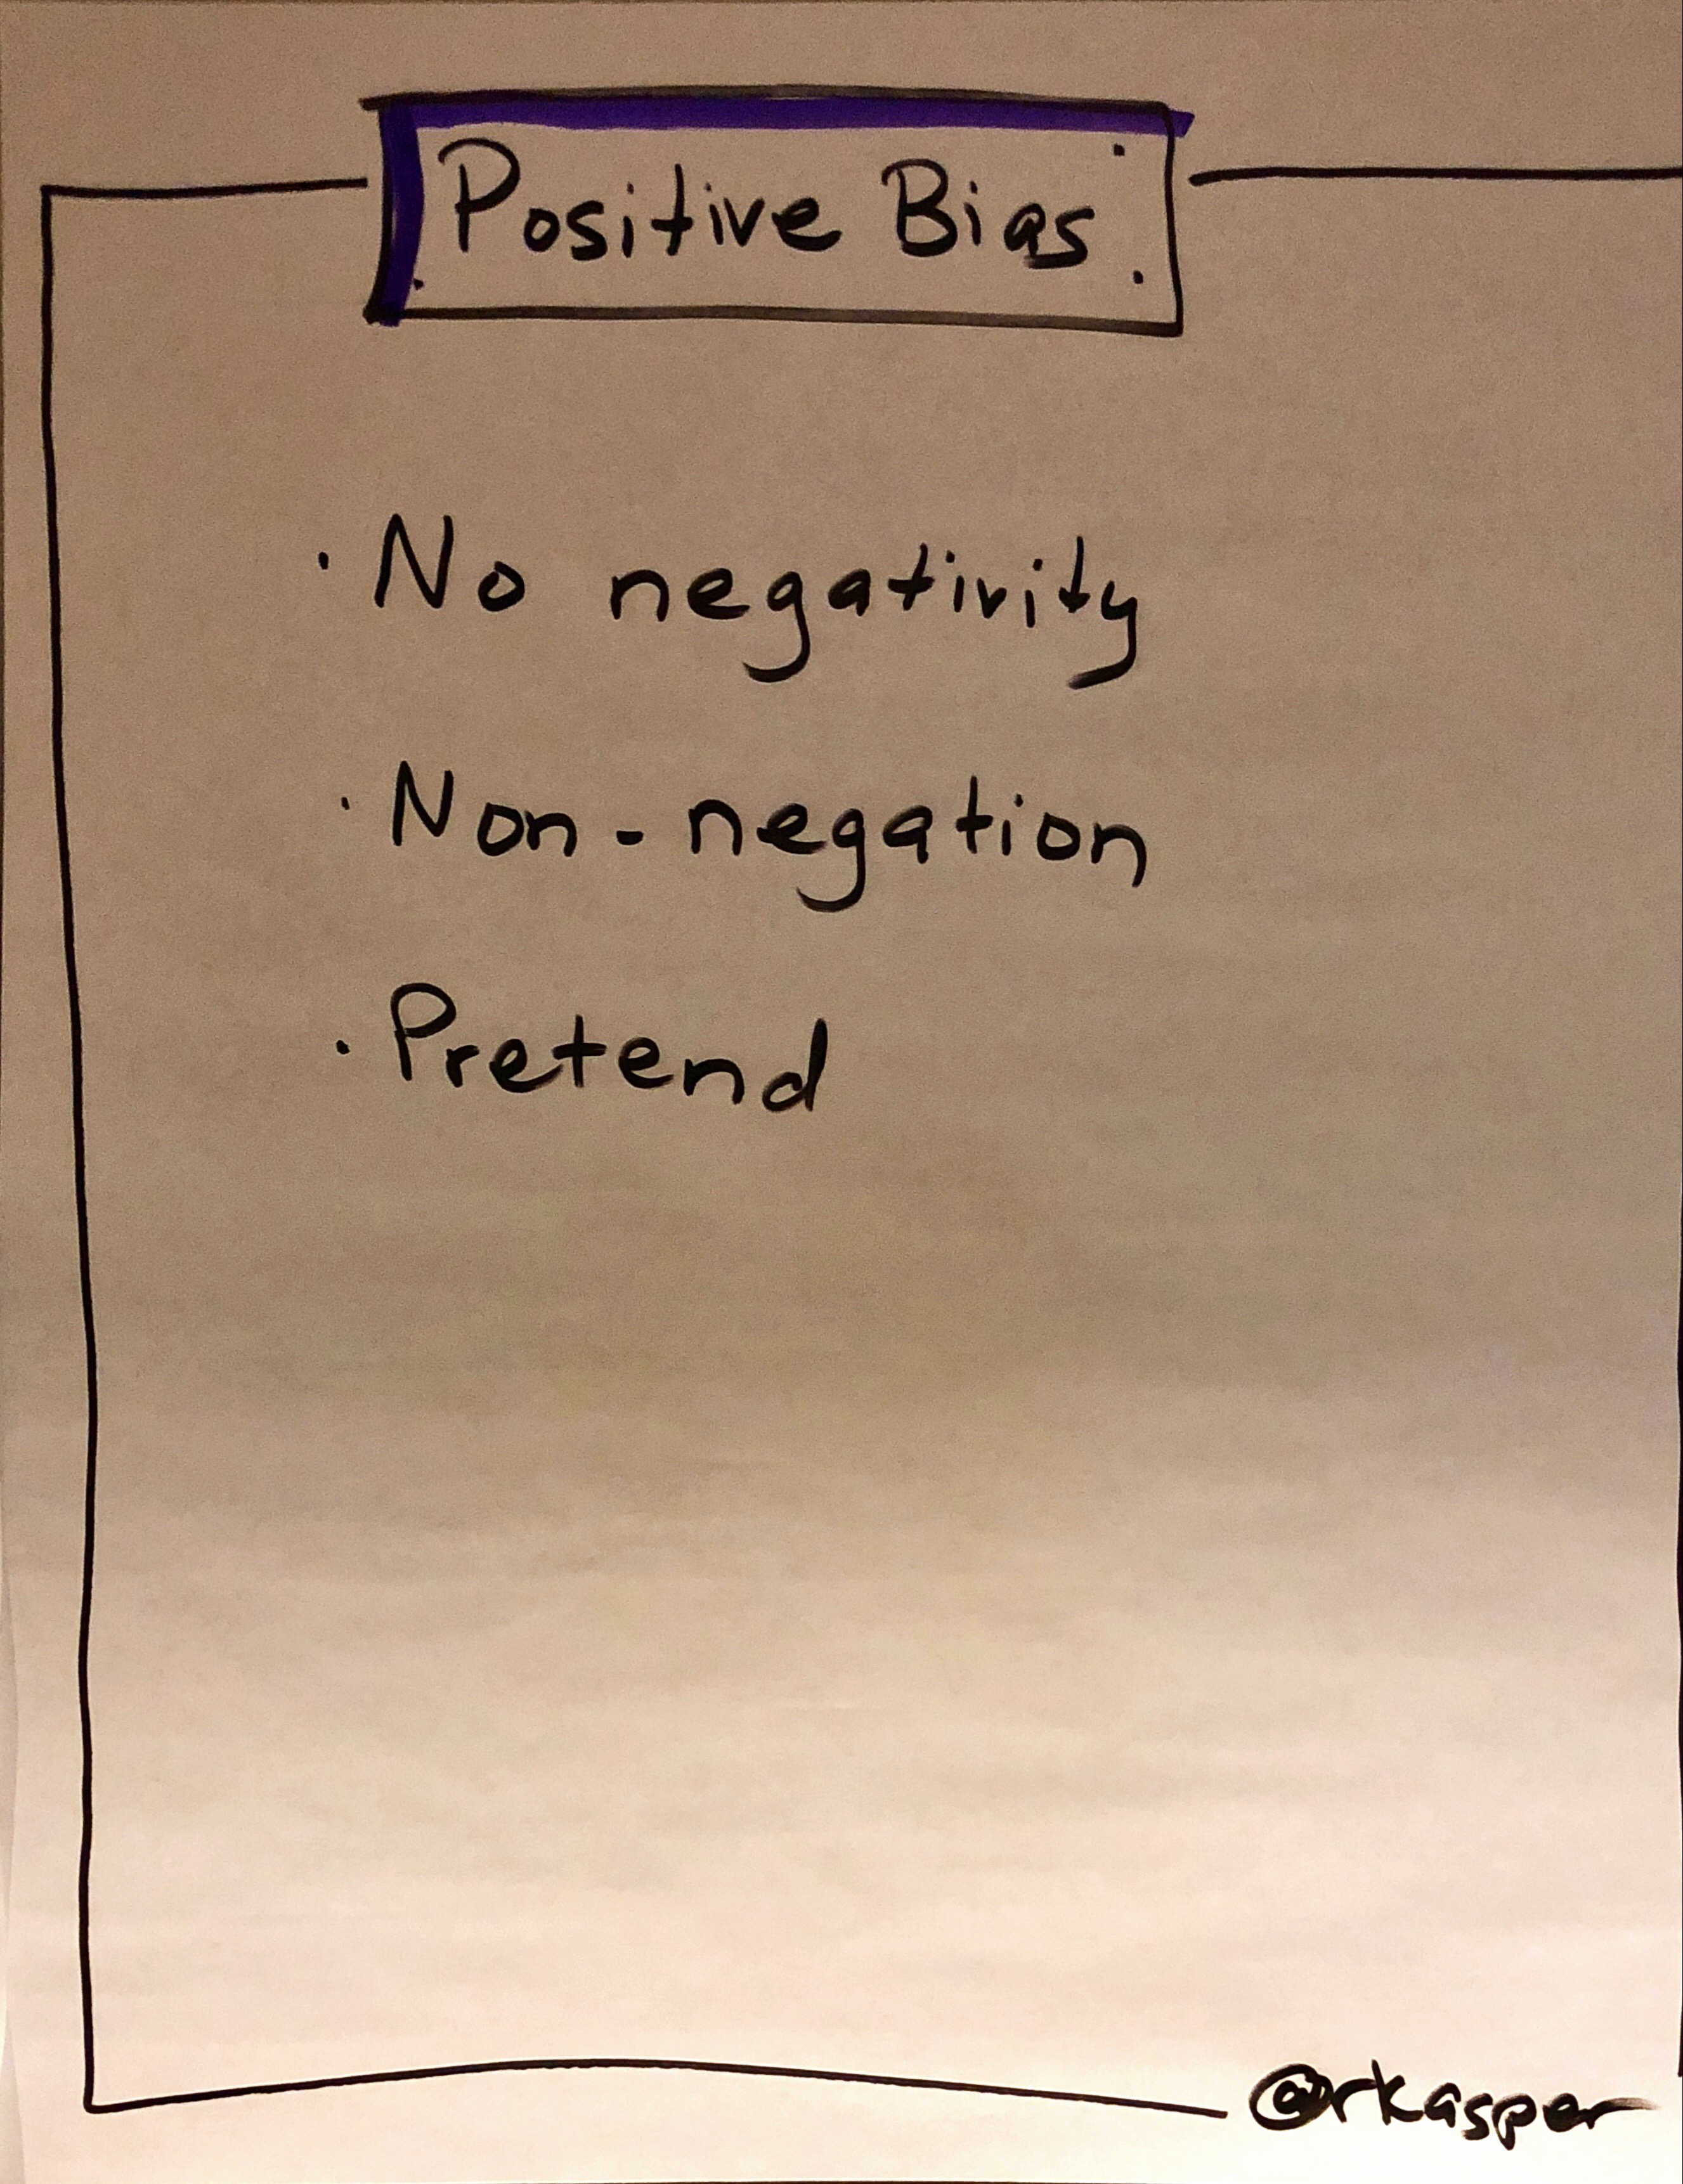 Positive Bias
· No negativity
· Non-negation
· Pretend
@rkasper